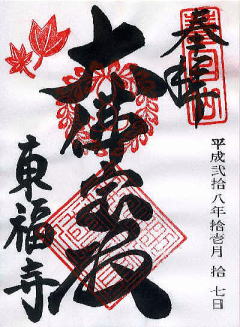 奉拝
平成弐拾八年拾壱月拾七日
大佛宝殿
東福寺